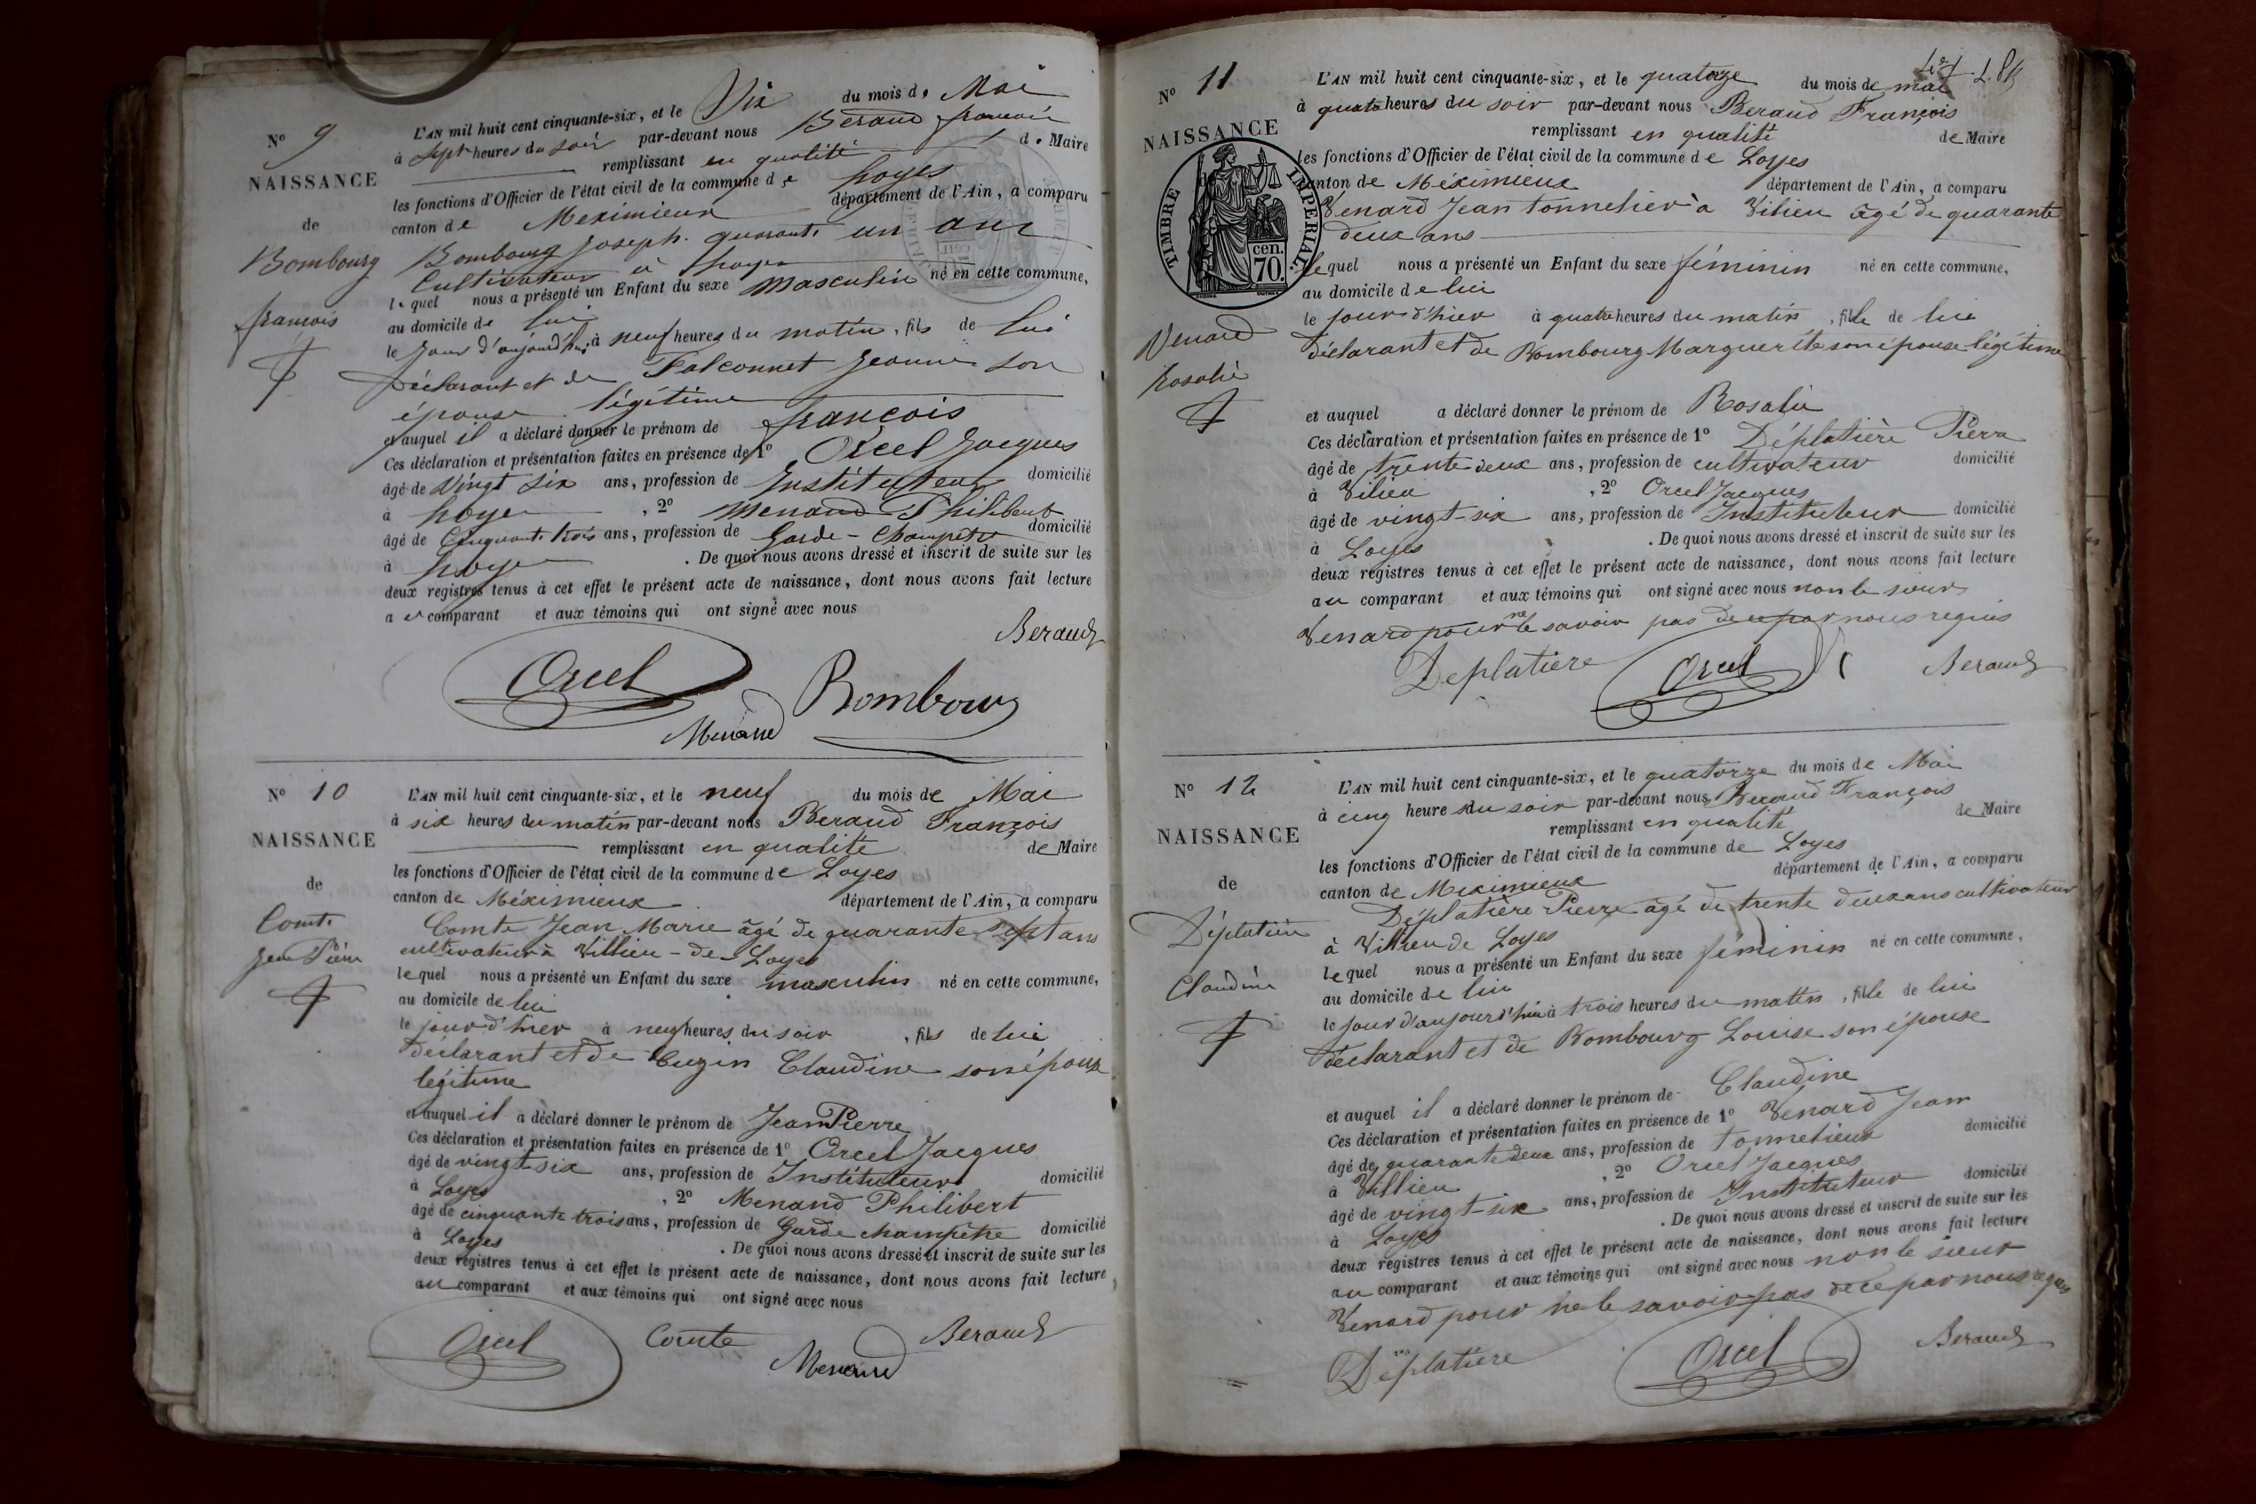 N° 9
NAISSANCE
de
Bombourg
françois
L'AN mil huit cent cinquante-six, et le Six du mois de Mai
à Sept heures du soir par-devant nous Béraud françois
remplissant en qualité de Maire
les fonctions d'Officier de l'état civil de la commune de Loyes
canton de Meximieux département de l'Ain, a comparu
Bombourg Joseph quarante un ans
Cultivateur à Loyes
lequel nous a présenté un Enfant du sexe masculin né en cette commune,
au domicile de lui
le jour d'aujourd'hui à neuf heures du matin, fils de lui
Déclarant et de Falconnet Jeanne son
épouse légitime
et auquel il a déclaré donner le prénom de françois
Ces déclaration et présentation faites en présence de 1° Orcel Jacques
âgé de Vingt Six ans, profession de Instituteur domicilié
à Loyes, 2° Menand Philibert
âgé de Cinquante trois ans, profession de Garde-Champetre domicilié
à Loyes. De quoi nous avons dressé et inscrit de suite sur les
deux registres tenus à cet effet le présent acte de naissance, dont nous avons fait lecture
au comparant et aux témoins qui ont signé avec nous
Beraud
Orcel Bombourg
Menand
N° 10
NAISSANCE
de
Comte
Jean Pierre
L'AN mil huit cent cinquante-six, et le neuf du mois de Mai
à six heures du matin par-devant nous Beraud François
remplissant en qualité de Maire
les fonctions d'Officier de l'état civil de la commune de Loyes
canton de Méximieux département de l'Ain, a comparu
Comte Jean Marie âgé de quarante sept ans
cultivateur à Villieu-de-Loyes
lequel nous a présenté un Enfant du sexe masculin né en cette commune,
au domicile de lui
le jour d'hier à neuf heures du soir, fils de lui
déclarant et de Cuzin Claudine son épouse
légitime
et auquel il a déclaré donner le prénom de Jean Pierre
Ces déclaration et présentation faites en présence de 1° Orcel Jacques
âgé de vingt six ans, profession de Instituteur domicilié
à Loyes, 2° Menand Philibert
âgé de cinquante trois ans, profession de Garde champêtre domicilié
à Loyes. De quoi nous avons dressé et inscrit de suite sur les
deux registres tenus à cet effet le présent acte de naissance, dont nous avons fait lecture
au comparant et aux témoins qui ont signé avec nous
Orcel Comte Beraud
Menand
N° 11
NAISSANCE
TIMBRE IMPERIAL.
70 cen.
Venard
Rosalie
L'AN mil huit cent cinquante-six, et le quatorze du mois de mai
à quatre heures du soir par-devant nous Beraud François
remplissant en qualité de Maire
les fonctions d'Officier de l'état civil de la commune de Loyes
canton de Méximieux département de l'Ain, a comparu
Venard Jean tonnelier à Vilieu âgé de quarante
deux ans
lequel nous a présenté un Enfant du sexe féminin né en cette commune,
au domicile de lui
le jour d'hier à quatre heures du matin, fille de lui
déclarant et de Bombourg Marguerite son épouse légitime
et auquel a déclaré donner le prénom de Rosalie
Ces déclaration et présentation faites en présence de 1° Déplatière Pierre
âgé de trente deux ans, profession de cultivateur domicilié
à Vilieu, 2° Orcel Jacques
âgé de vingt-six ans, profession de Instituteur domicilié
à Loyes. De quoi nous avons dressé et inscrit de suite sur les
deux registres tenus à cet effet le présent acte de naissance, dont nous avons fait lecture
au comparant et aux témoins qui ont signé avec nous non le sieur
Venard pour ne le savoir pas de ce par nous requis
Deplatière Orcel Beraud
N° 12
NAISSANCE
de
Déplatière
Claudine
L'AN mil huit cent cinquante-six, et le quatorze du mois de Mai
à cinq heures du soir par-devant nous Beraud François
remplissant en qualité de Maire
les fonctions d'Officier de l'état civil de la commune de Loyes
canton de Meximieux département de l'Ain, a comparu
Déplatière Pierre âgé de trente deux ans cultivateur
à Villieu de Loyes
lequel nous a présenté un Enfant du sexe féminin né en cette commune,
au domicile de lui
le jour d'aujourd'hui à trois heures du matin, fille de lui
déclarant et de Bombourg Louise son épouse
et auquel il a déclaré donner le prénom de Claudine
Ces déclaration et présentation faites en présence de 1° Venard Jean
âgé de quarante deux ans, profession de tonnelieur domicilié
à Villieu, 2° Orcel Jacques
âgé de vingt-six ans, profession de Instituteur domicilié
à Loyes. De quoi nous avons dressé et inscrit de suite sur les
deux registres tenus à cet effet le présent acte de naissance, dont nous avons fait lecture
au comparant et aux témoins qui ont signé avec nous non le sieur
Venard pour ne le savoir pas de ce par nous requis
Déplatière Orcel Beraud